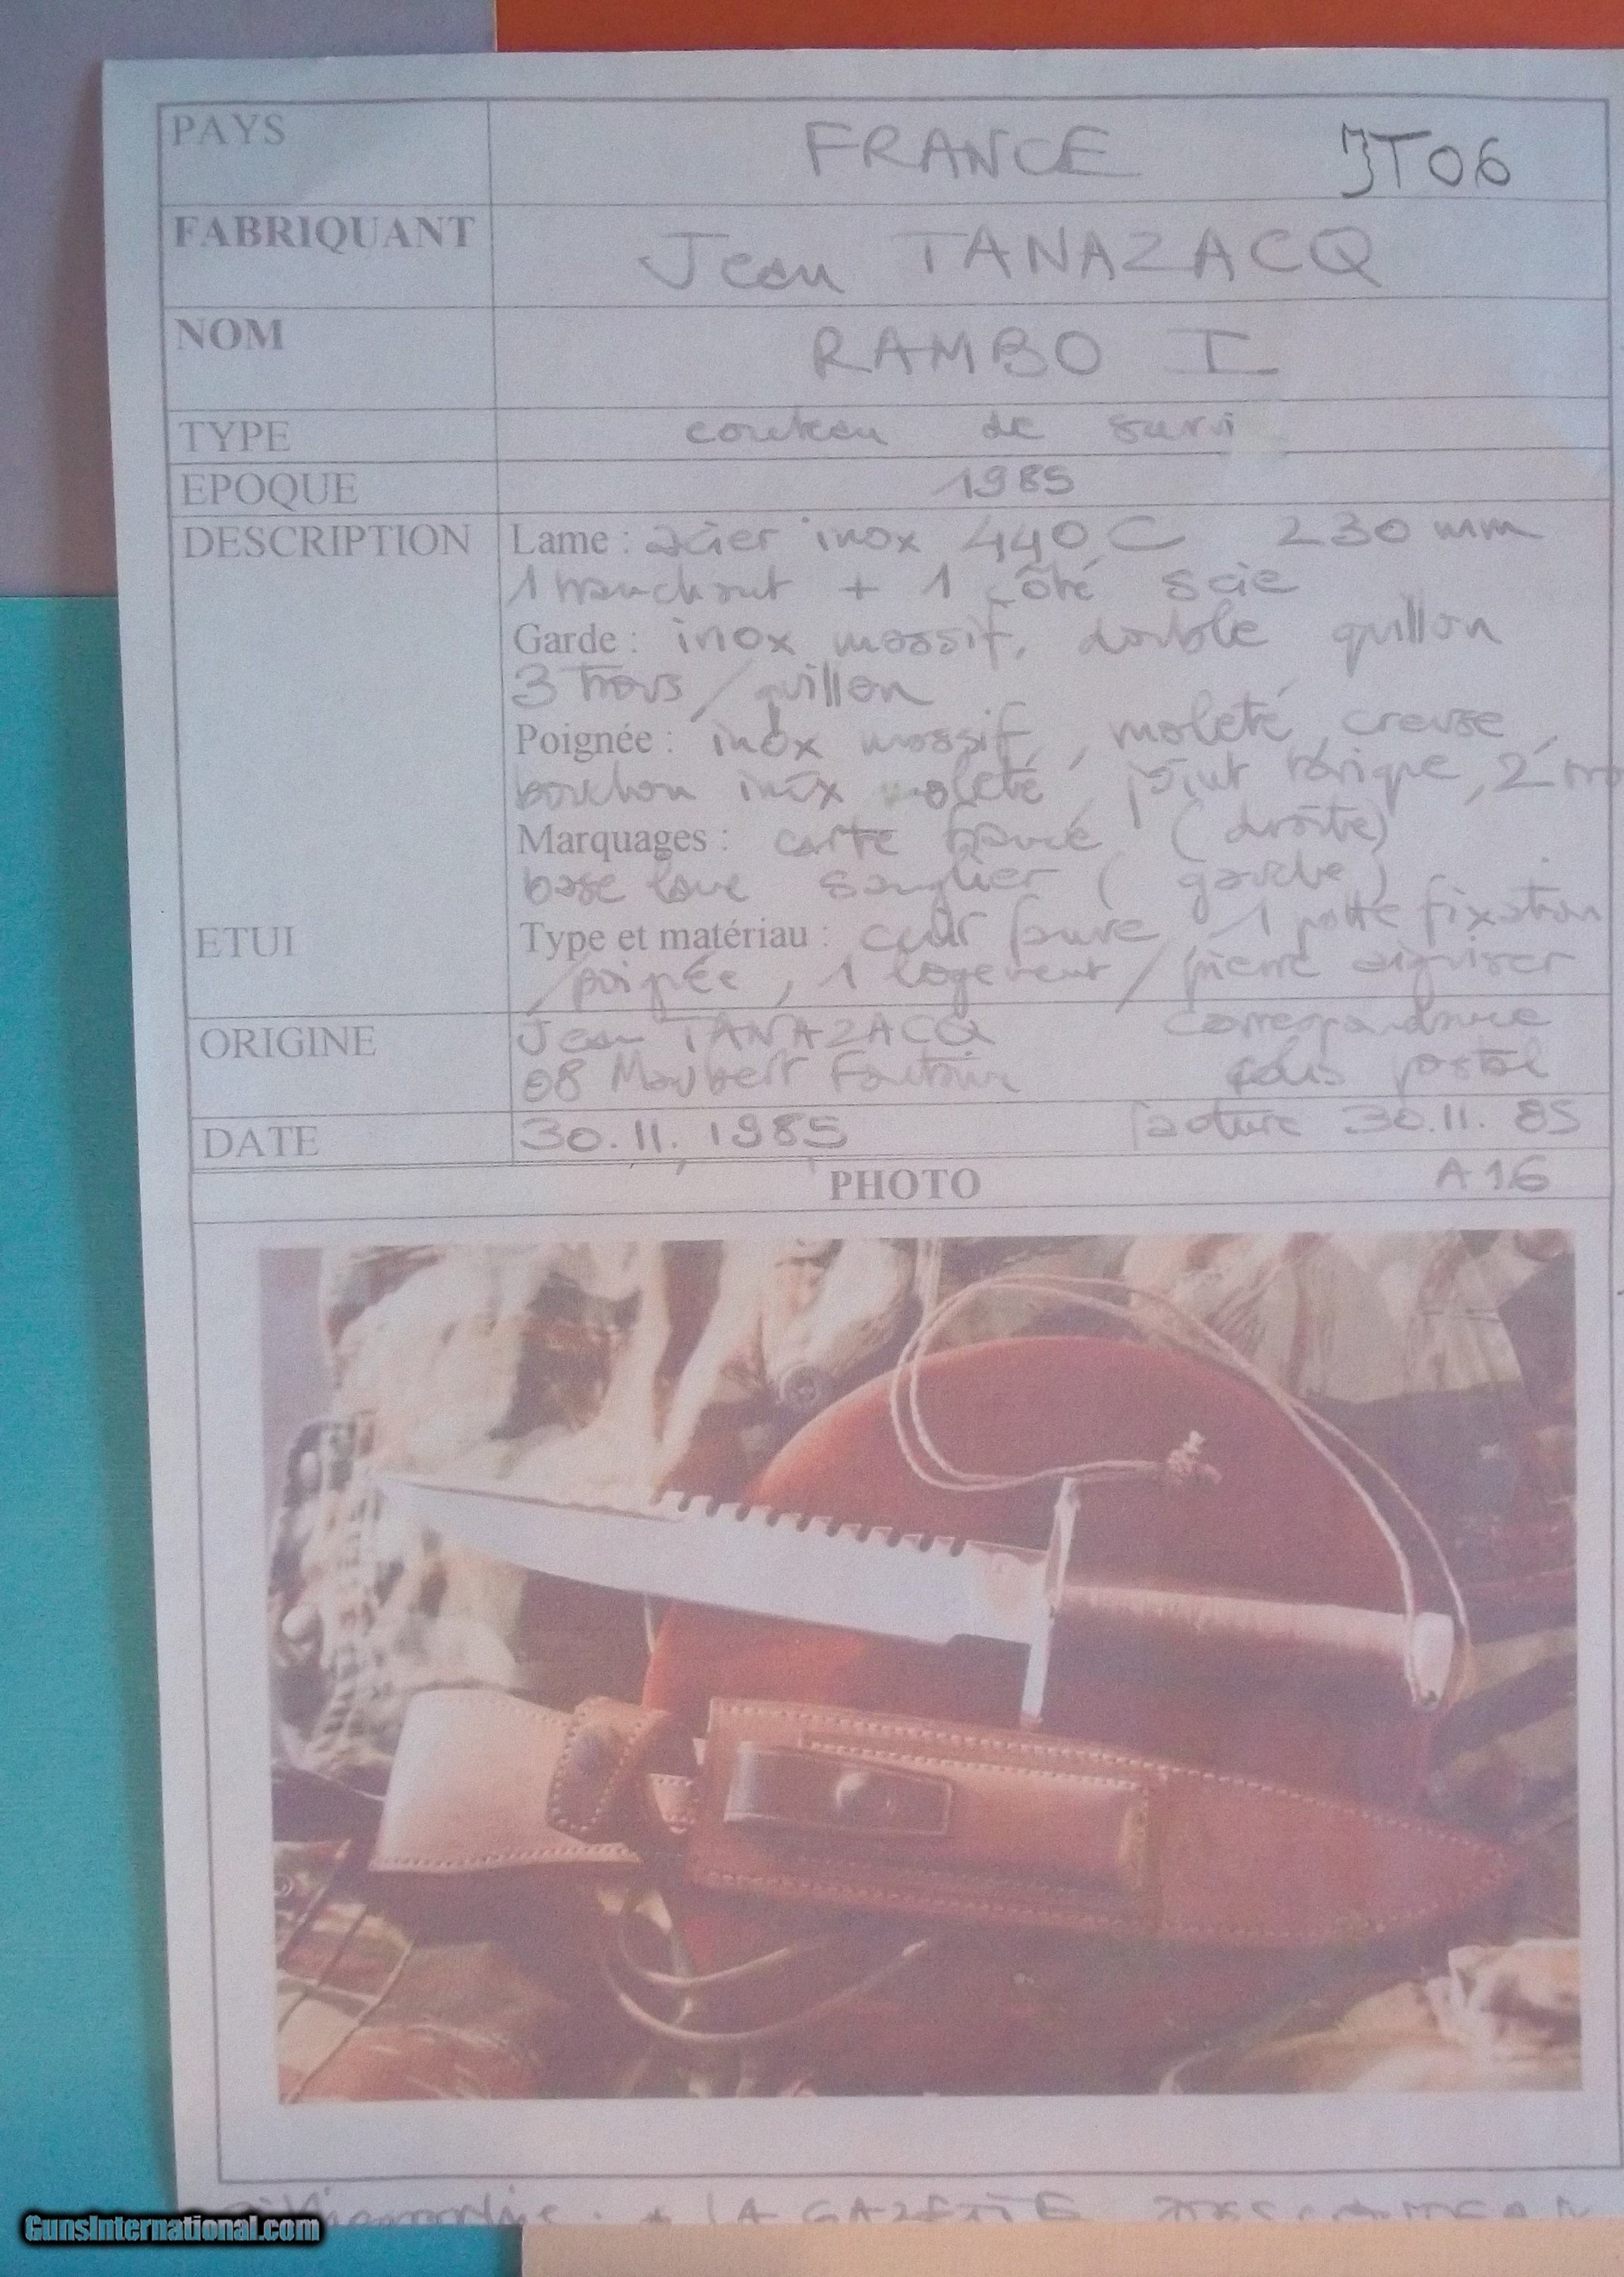 PAYS FRANCE JT06
FABRIQUANT Jean TANAZACQ
NOM RAMBO I
TYPE couteau de survi
EPOQUE 1985
DESCRIPTION Lame : acier inox 440 C 230 mm
1 tranchant + 1 côté scie
Garde : inox massif, double quillon
3 trous / quillon
Poignée : inox massif, moleté, creuse,
bouchon inox moleté, joint torique, 2
Marquages : carte France (droite)
base lame sanglier (gauche)
ETUI Type et matériau : cuir fauve, 1 patte fixation
/ poignée, 1 logement / pierre aiguiser
ORIGINE Jean TANAZACQ Correspondance
08 Maubert Fontaine colis postal
DATE 30.11.1985 facture 30.11.85
PHOTO A16
LA GAZETTE
GunsInternational.com